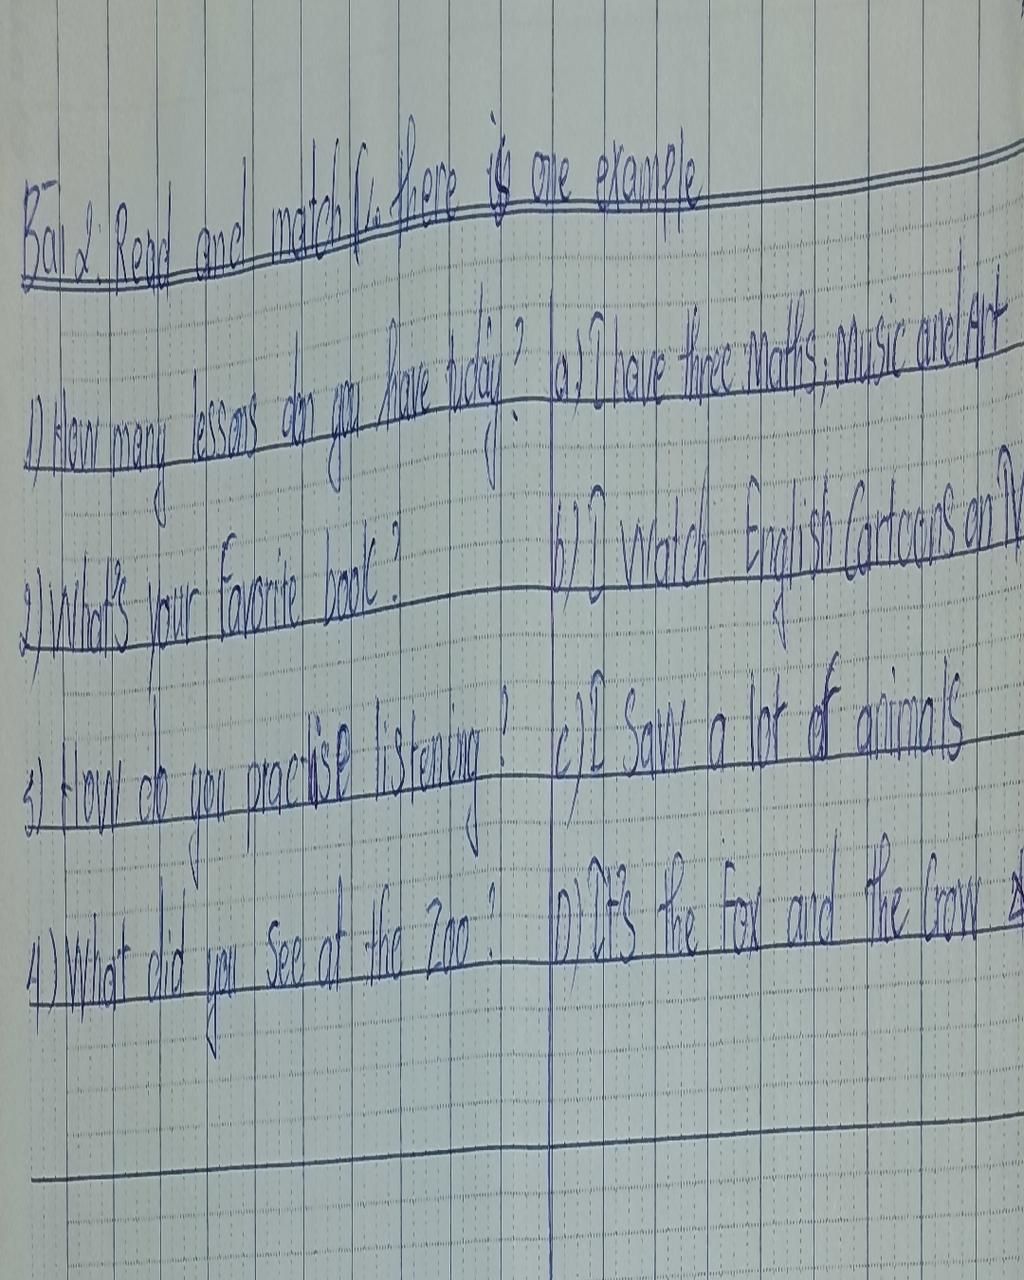 Bài 2: Read and match. there is one example
1) How many lessons don you have today? a) I have three Maths, Music and Art
2) What's your favorite book? b) I Watch English Cartoons on TV
3) How do you practise listening? c) I Saw a lot of animals
4) What did you See at the Zoo? D) It's the Fox and the Crow